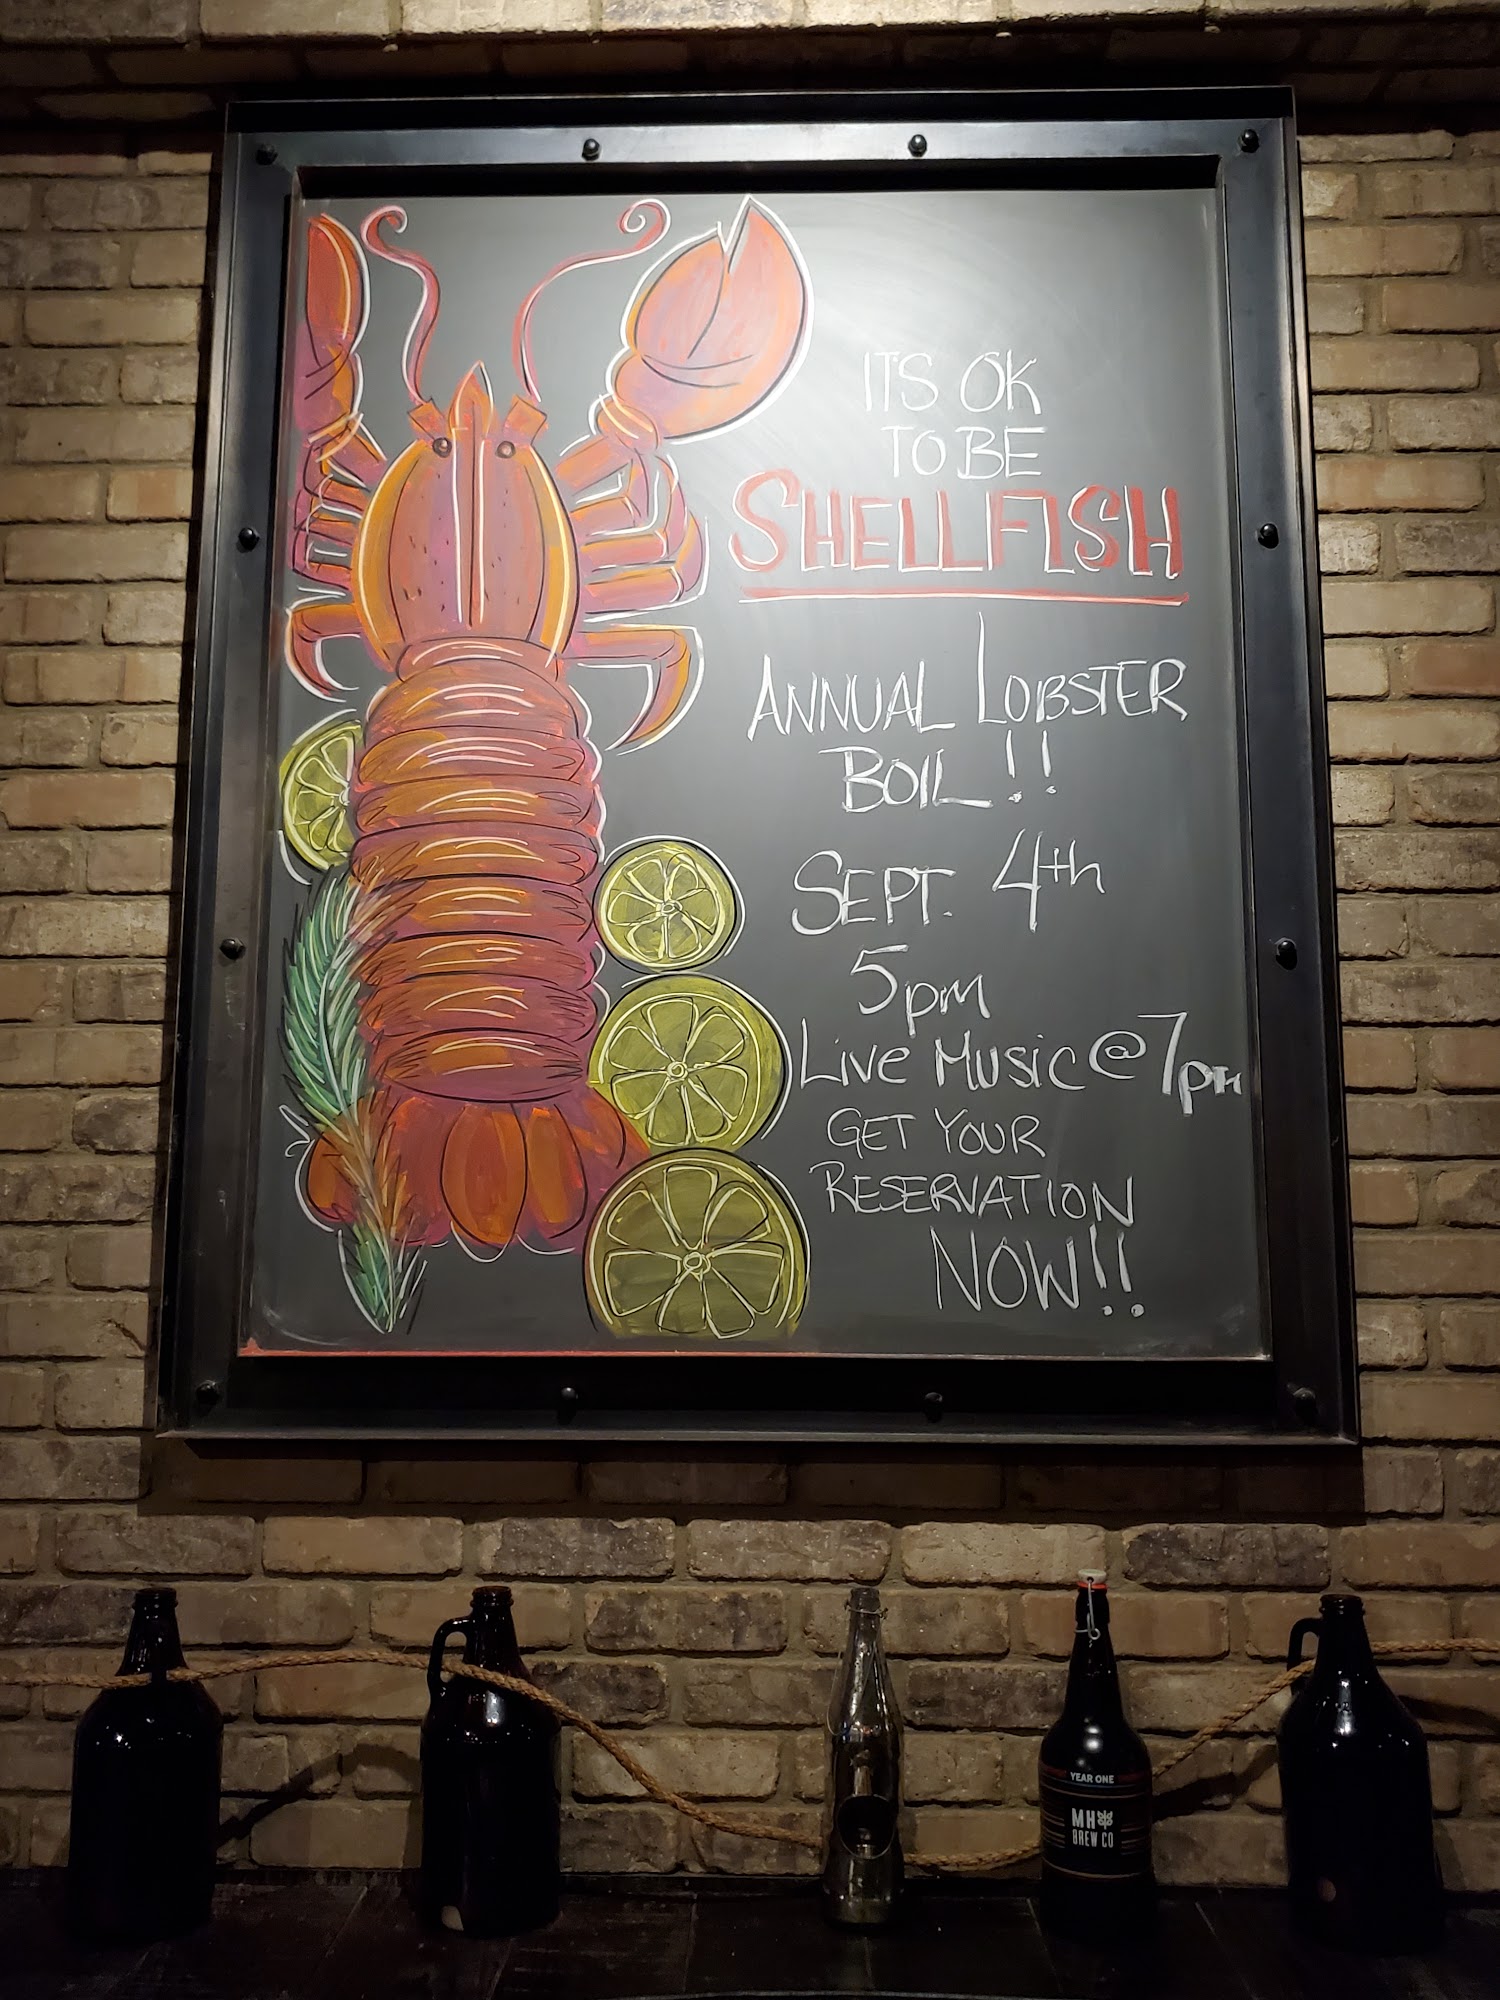 IT'S OK
TO BE
SHELLFISH
ANNUAL LOBSTER
BOIL!!
SEPT. 4th
5pm
LIVE MUSIC @ 7pm
GET YOUR
RESERVATION
NOW!!
YEAR ONE
MH
BREW CO